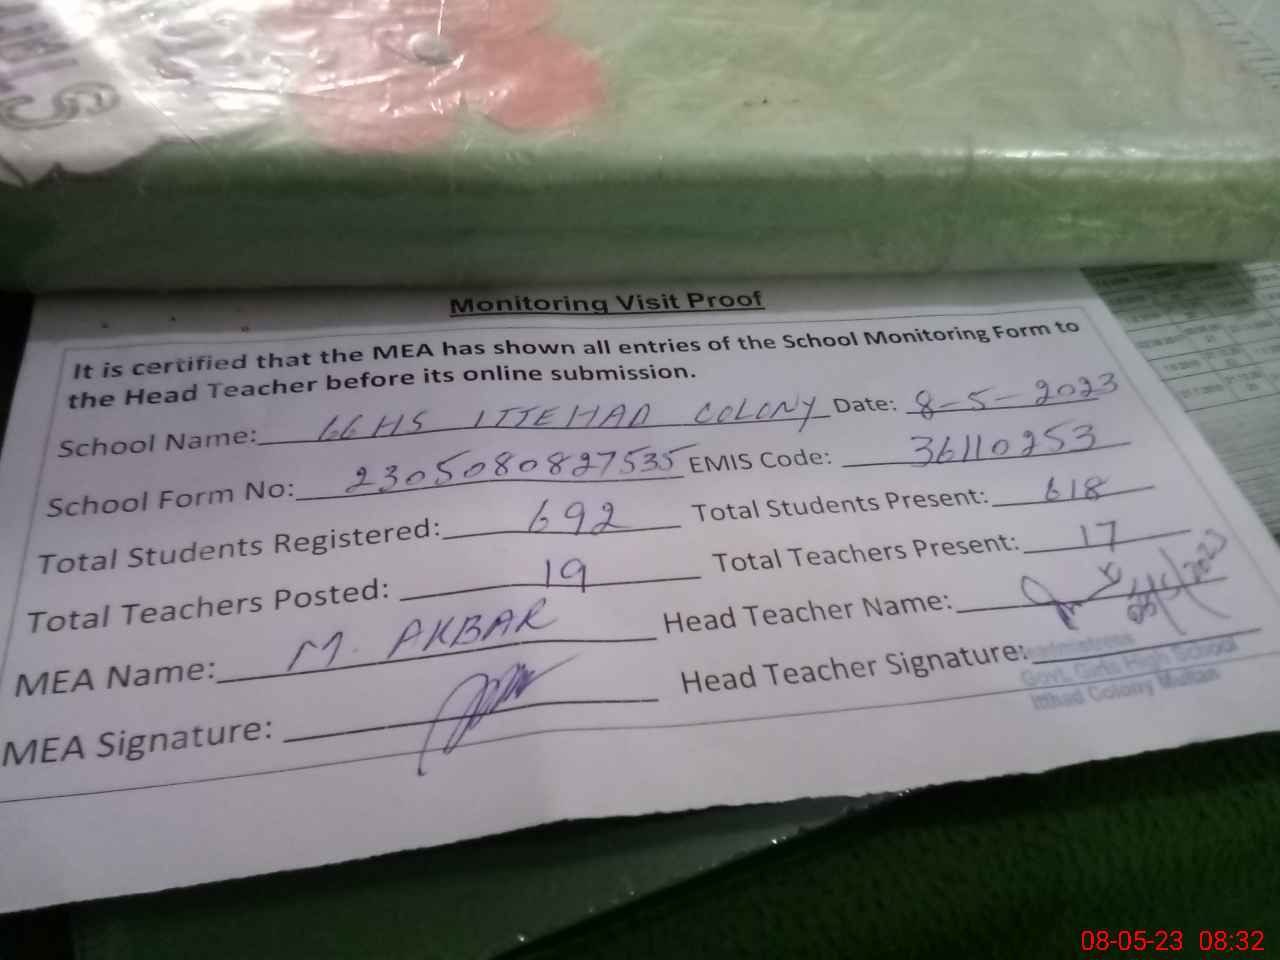 Monitoring Visit Proof
It is certified that the MEA has shown all entries of the School Monitoring Form to
the Head Teacher before its online submission.
School Name: GGHS ITTEHAD COLONY Date: 8-5-2023
School Form No: 2305080827535 EMIS Code: 36110253
Total Students Registered: 692 Total Students Present: 618
Total Teachers Posted: 19 Total Teachers Present: 17
MEA Name: M. AKBAR Head Teacher Name:
MEA Signature: Head Teacher Signature:
Govt. Girls High School
Ittihad Colony Multan
08-05-23 08:32